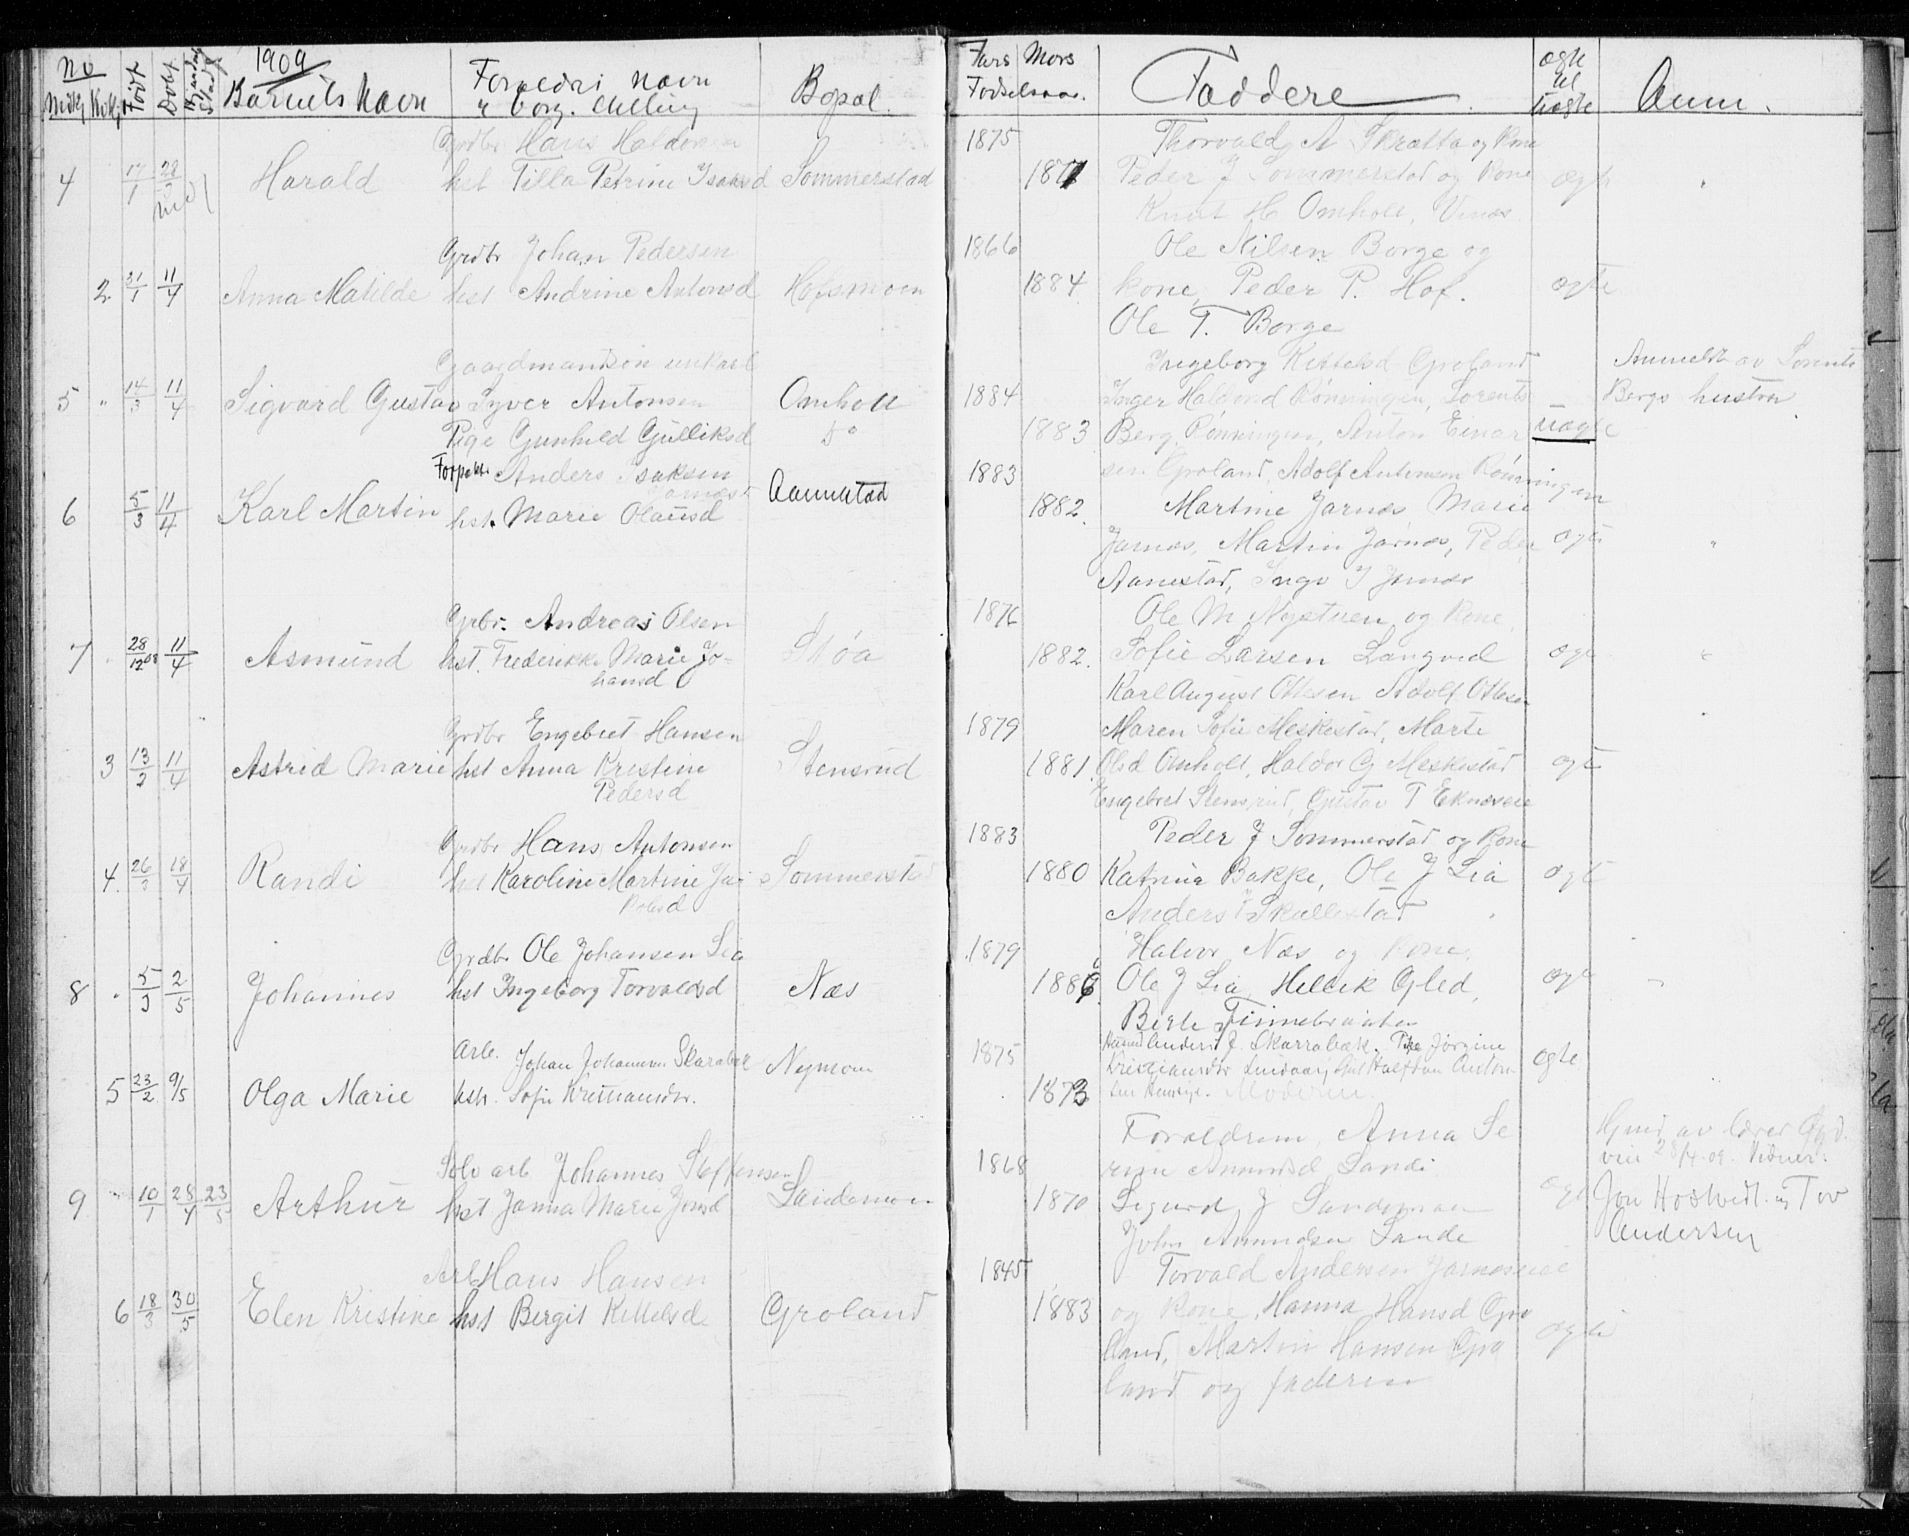 No 1909
Mdkj Kvkj Født Døbt
Barnets Navn
Forældres navn
u borg. stilling
Bopæl
Fars Mors
Fødselsaar.
Faddere
ægte
el
uægte
Anm.
Grdbr Hans Haldorsen
4 17/1 28/2 Harald hst Tilla Petrine Isaksd Sommerstad
1875
1877
Thorvald A Skratta og Kone
Peder J Sommerstad og Kone ægte
Knut H Omholt,
Grdbr Johan Pedersen
2 21/1 11/4 Anna Matilde hst Andrine Antonsd Hofsmoen
1866
1884
Ole Nilsen Borge og
kone, Peder P. Hof. ægte
Ole T. Borge
Gaardmandsøn unkarl
5 " 14/3 11/4 Sigvard Gustav Syver Antonsen Omholt
Pige Gunhild Gulliksd Do
1884
1883
Ingeborg Kittelsd Groland
Inger Haldorsd Rønningen, Lorents
Berg, Rønningen, Anton Einar
sen Groland, Adolf Antonsen Rønningen
uægte
Anmeldt av Lorents
Bergs hustru
Forpakt. Anders Isaksen
Jarnæs
6 5/3 11/4 Karl Martin hst. Marie Olausd Aannestad
1883
1882.
Martine Jarnæs Marie
Jarnæs, Martin Jarnæs, Peder ægte "
Aannestad, Inga I Jarnæs
Grbr. Andreas Olsen
7 28/12 08 11/4 Asmund hst. Frederikke Marie Jo-
hansd
Støa
1876
1882.
Ole M Nystuen og Kone,
Sofie Larsen Langved ægte "
Karl August Ottesen Adolf Ottesen
Grdbr Engebret Hansen
3 13/2 11/4 Astrid Marie hst Anna Kristine
Pedersd
Stensrud
1879
1881.
Maren Sofie Meskestad, Marte
Olsd Omholt, Haldor G Meskestad ægte
Engebret Stensrud, Gustav T Eknæseie
Grdbr Hans Antonsen
4. 26/2 18/4 Randi hst Karoline Martine Ja-
kobsd
Sommerstad
1883
1880
Peder J Sommerstad og Kone
Katrine Bakke, Ole J Lia ægte
Anders Skallestad
Grdbr Ole Johansen Lia
8 " 5/3 2/5 Johannes hst Ingeborg Torvaldsd Næs
1879
1886
Halvor Næs og Kone,
Ole J Lia Hellik Gled, ægte
Berte Finnebraaten
Arb. Johan Johansen Skarabæk
5 23/2 9/5 Olga Marie hstr. Sofie Kristiansdtr. Nymoen
1875
1873
Anders J. Skarrabæk. Pike Jørgine
Kristiansdtr Lindaas, Halfdan Anton
sen Moderen.
ægte
Selv arb Johannes Steffensen
9 10/1 28/4 23/5 Arthur hst Janna Marie Jonsd Sandemoen
1868
1870
Forældrene, Anna Se
rine Amundsd Sande
Sigurd J Sandemoen ægte
John Amundsen Sande
Hjmd. av lærer
28/4.09. Vidner:
Jon Hostvedt og Tov
Andersen
Arb Hans Hansen
6 18/3 30/5 Elen Kristine hst Bergit Kittelsd Groland
1845
1883
Torvald Andersen Jarnæseie
og Kone, Hanna Hansd Gro
land, Martin Hansen Gro ægte
land og faderen